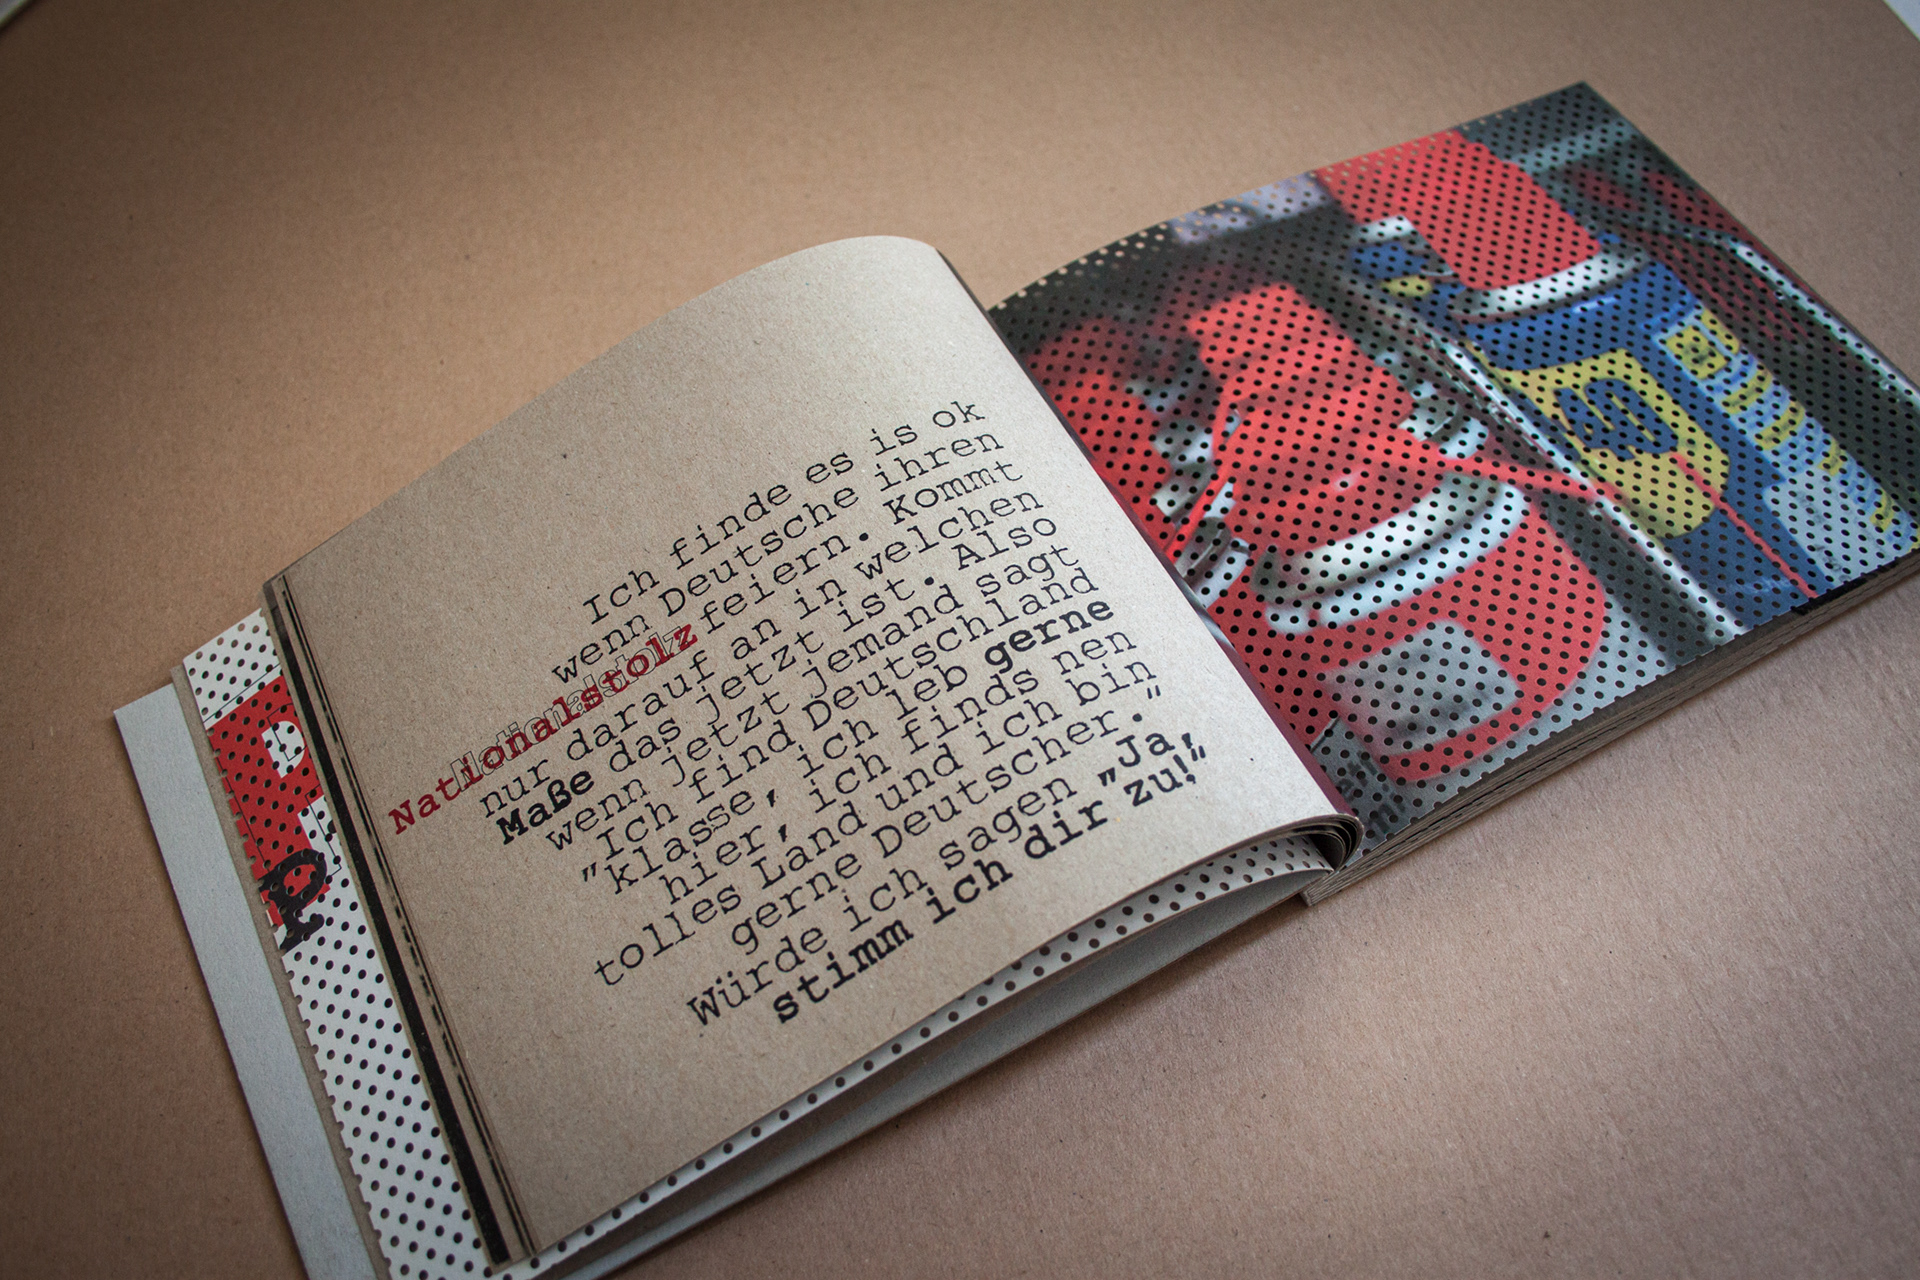 Ich finde es is ok
wenn Deutsche ihren
Nationalstolz feiern. Kommt
nur darauf an in welchen
Maße das jetzt ist. Also
wenn jetzt jemand sagt
"Ich find Deutschland
klasse, ich leb gerne
hier, ich finds nen
tolles Land und ich bin
gerne Deutscher."
Würde ich sagen „Ja,
stimm ich dir zu!"
p